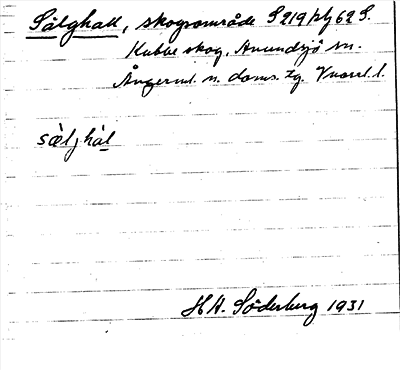 Sälghall, skogsområde S 219 plg 62 S.
Kubbe skog, Anundsjö sn.
Ångerml. n. doms. tg. Vnorrl. l.
sæ̀ljhàl
H. A. Söderberg 1931